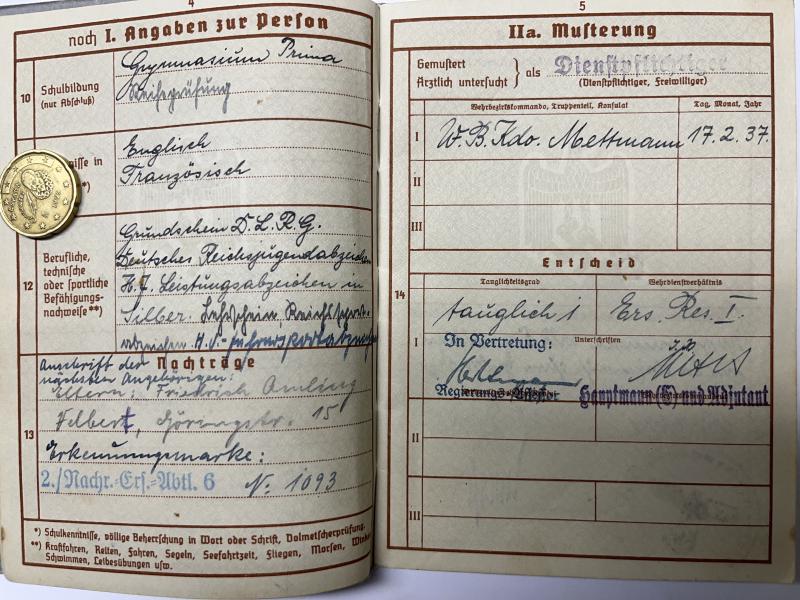 4
noch I. Angaben zur Person
10
Schulbildung
(nur Abschluß)
Gymnasium Prima
Reifeprüfung
nisse in
*)
Englisch
Französisch
12
Berufliche,
technische
oder sportliche
Befähigungs-
nachweise**)
Grundschein D.L.R.G.
Deutsches Reichsjugendabzeichen
H.J. Leistungsabzeichen in
Silber. Lehrschein, Reichssport-
abzeichen. H.J.-
Nachträge
Anschrift der
nächsten Angehörigen:
13
Eltern: Friedrich Amling
Velbert, Göringstr. 15
Erkennungsmarke:
2./Nachr.-Ers.-Abtl. 6 Nr. 1093
*) Schulkenntnisse, völlige Beherrschung in Wort oder Schrift, Dolmetscherprüfung.
**) Kraftfahren, Reiten, Fahren, Segeln, Seefahrtzeit, Fliegen, Morsen, Winken
Schwimmen, Leibesübungen usw.
5
IIa. Musterung
Gemustert
Ärztlich untersucht } als Dienstpflichtiger
(Dienstpflichtiger, Freiwilliger)
Wehrbezirkskommando, Truppenteil, Konsulat
Tag, Monat, Jahr
I
W.B.Kdo. Mettmann 17.2.37.
II
III
Entscheid
14
Tauglichkeitsgrad
Wehrdienstverhältnis
I
tauglich 1 Ers. Res. I.
In Vertretung:
Unterschriften
Regierungs-Assessor
Hauptmann (E) und Adjutant
II
III